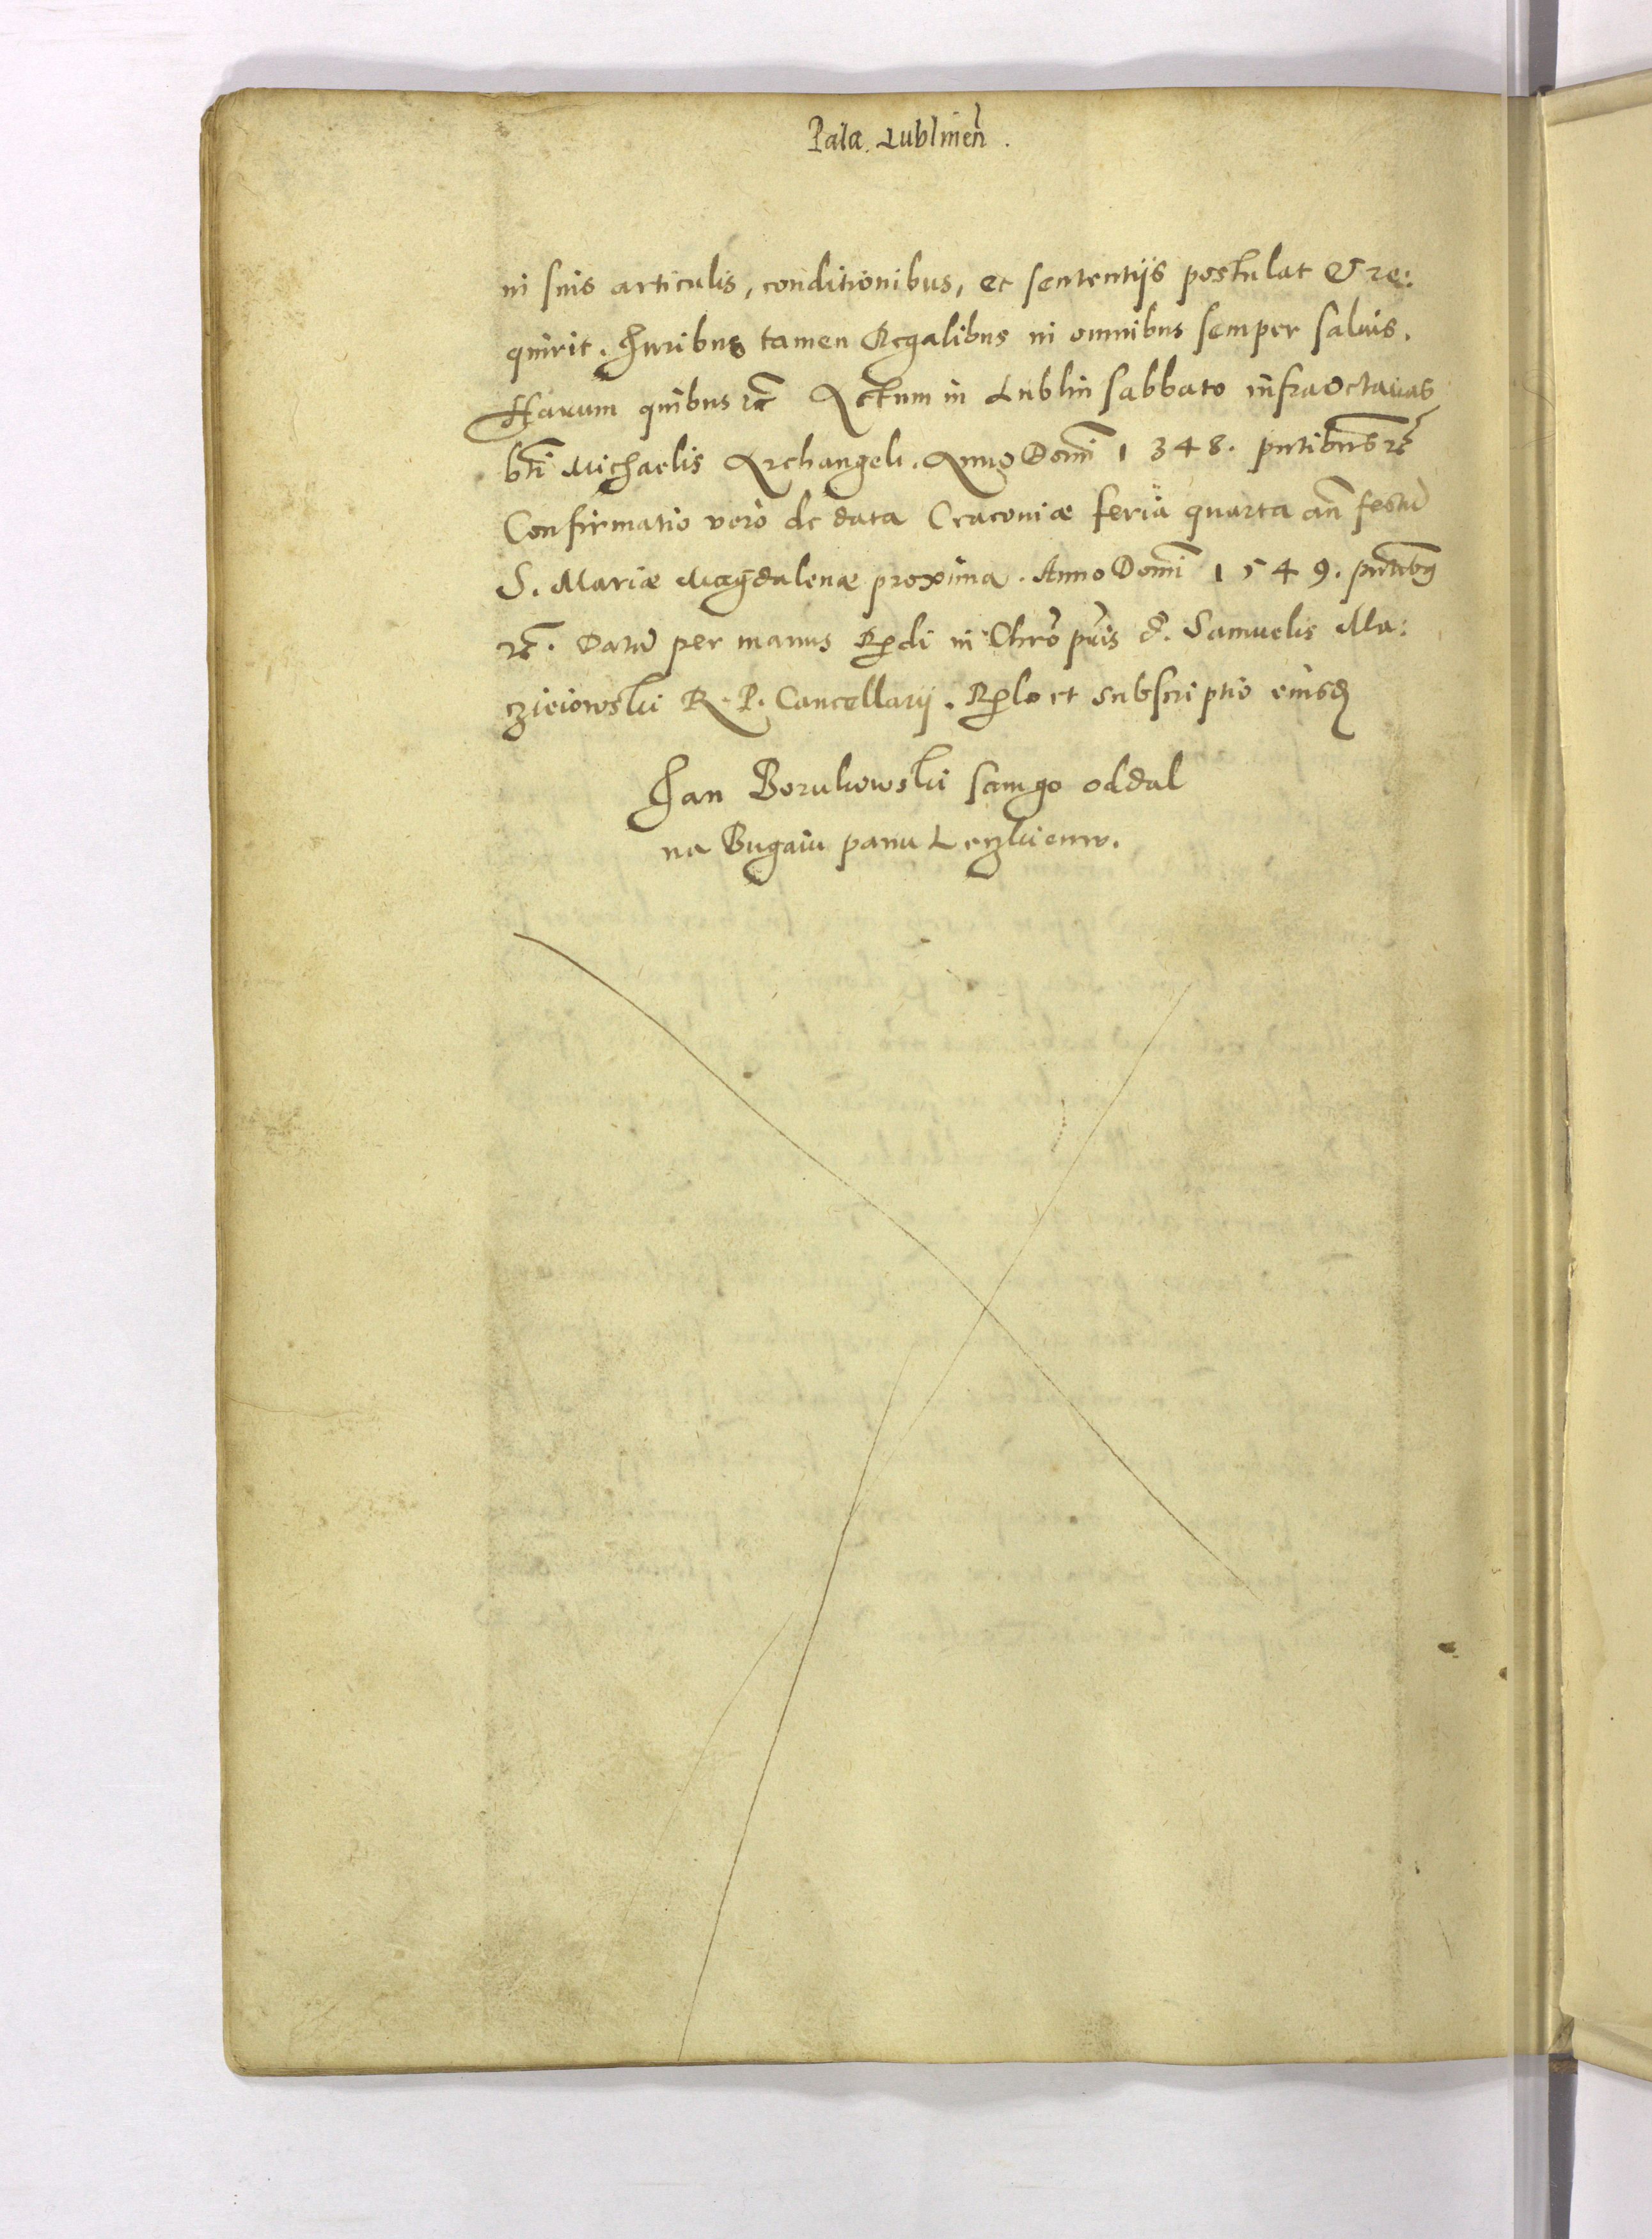 Pala. Lublineñ.
in suis articulis, conditionibus, et sententijs postulat & re:
quirit. Juribus tamen Regalibus in omnibus semper saluis.
Harum quibus etc̃ Actum in Lublin sabbato infra octauas
bt̃i Michaelis Archangeli. Anno Domĩ 1348. pñtibus etc̃
Confirmatio vero de data Cracouiæ feria quarta añ festũ
S. Mariæ Magdalenæ proxima. Anno Domĩ 1549. pñtibus
etc̃. Datũ per manus Rndi in Chrõ pñis d. Samuelis Ma:
czieiowski R. P. Cancellarij. Rlo et subscriptio eiusd
Jan Borukowski samgo oddal
na Bugaiu panu